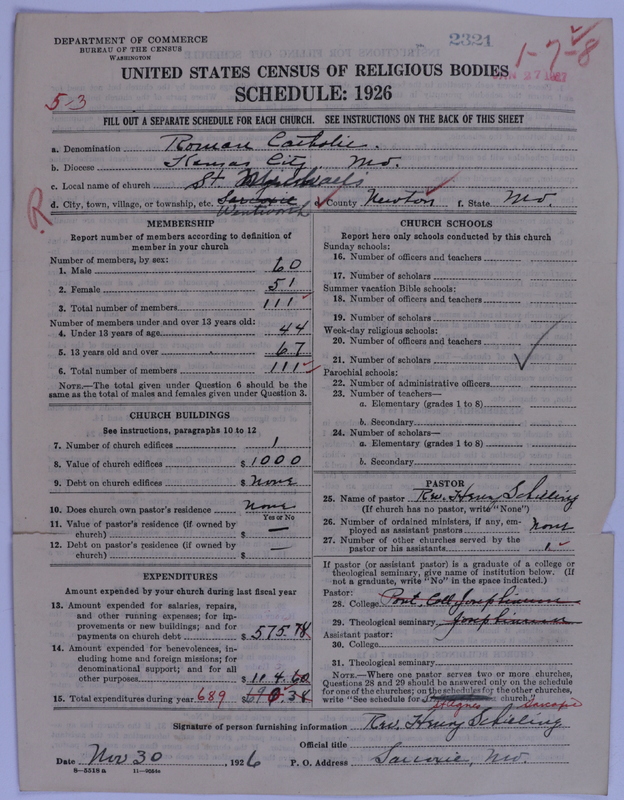 DEPARTMENT OF COMMERCE
BUREAU OF THE CENSUS
WASHINGTON
2321
1-7-8
JAN 27 1927
UNITED STATES CENSUS OF RELIGIOUS BODIES
SCHEDULE: 1926
5-3
FILL OUT A SEPARATE SCHEDULE FOR EACH CHURCH. SEE INSTRUCTIONS ON THE BACK OF THIS SHEET
a. Denomination Roman Catholic
b. Diocese Kansas City, Mo.
c. Local name of church St Michaels
d. City, town, village, or township, etc. Sarcoxie e. County Newton f. State Mo.
Wentworth
R
MEMBERSHIP
Report number of members according to definition of
member in your church
Number of members, by sex:
1. Male 60
2. Female 51
3. Total number of members 111
Number of members under and over 13 years old:
4. Under 13 years of age 44
5. 13 years old and over 67
6. Total number of members 111
NOTE.—The total given under Question 6 should be
same as the total of males and females given under Question 3.
CHURCH BUILDINGS
See instructions, paragraphs 10 to 12
7. Number of church edifices 1
8. Value of church edifices $ 1000
9. Debt on church edifices $ None
10. Does church own pastor's residence None
Yes or No
11. Value of pastor's residence (if owned by
church) $ —
12. Debt on pastor's residence (if owned by
church) $ —
EXPENDITURES
Amount expended by your church during last fiscal year
13. Amount expended for salaries, repairs,
and other running expenses; for im-
provements or new buildings; and for
payments on church debt $ 575.78
14. Amount expended for benevolences, in-
cluding home and foreign missions; for
denominational support; and for all
other purposes $ 114.60
15. Total expenditures during year 689 $ 690.38
CHURCH SCHOOLS
Report here only schools conducted by this church
Sunday schools:
16. Number of officers and teachers
17. Number of scholars
Summer vacation Bible schools:
18. Number of officers and teachers
19. Number of scholars
Week-day religious schools:
20. Number of officers and teachers
21. Number of scholars
Parochial schools:
22. Number of administrative officers
23. Number of teachers—
a. Elementary (grades 1 to 8)
b. Secondary
24. Number of scholars—
a. Elementary (grades 1 to 8)
b. Secondary
PASTOR
25. Name of pastor Rev. Henry Schilling
(If church has no pastor, write "None")
26. Number of ordained ministers, if any, em-
ployed as assistant pastors None
27. Number of other churches served by the
pastor or his assistants 1
If pastor (or assistant pastor) is a graduate of a college or
theological seminary, give name of institution below. (If
not a graduate, write "No" in the space indicated.)
Pastor:
28. College Pont. Coll Josephinum
29. Theological seminary Josephinum
Assistant pastor:
30. College
31. Theological seminary
NOTE.—Where pastor serves two or more churches,
Questions 28 and 29 should be answered only on the schedule
for one of the churches; on the schedules for the other churches,
write "See schedule for church."
Sarcoxie
Signature of person furnishing information Rev. Henry Schilling
Official title
Date Nov 30, 1926 P. O. Address Sarcoxie, Mo.
8—5518 a